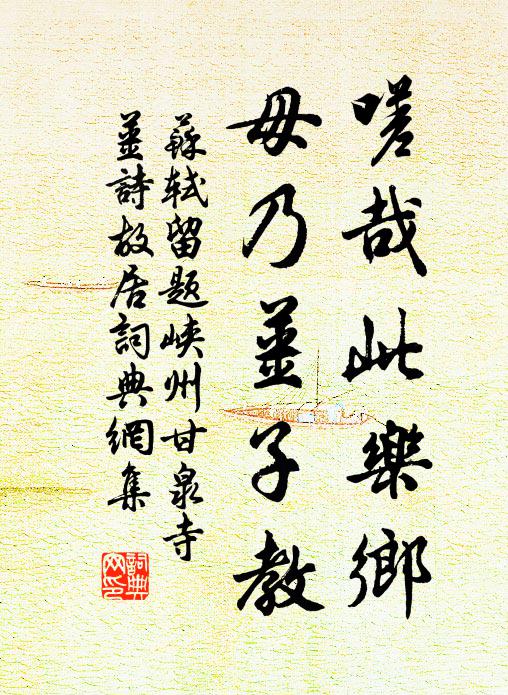 嗟哉此樂鄉
毋乃薑子教
蘇軾留題峽州甘泉寺
薑詩故居詞典網集
詞典網印